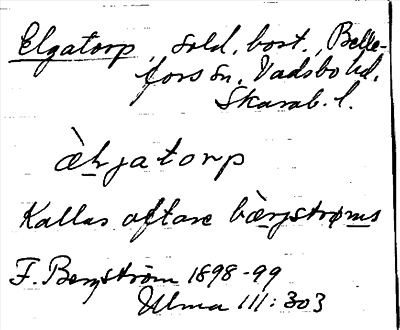 Elgatorp, sold. bost., Belle-
fors sn. Vadsbo hd.
Skarab. l.
æ̀lgatorp
Kallas oftare bæ̀rjstrøms
F. Bergström 1898-99
Ulma 111:303